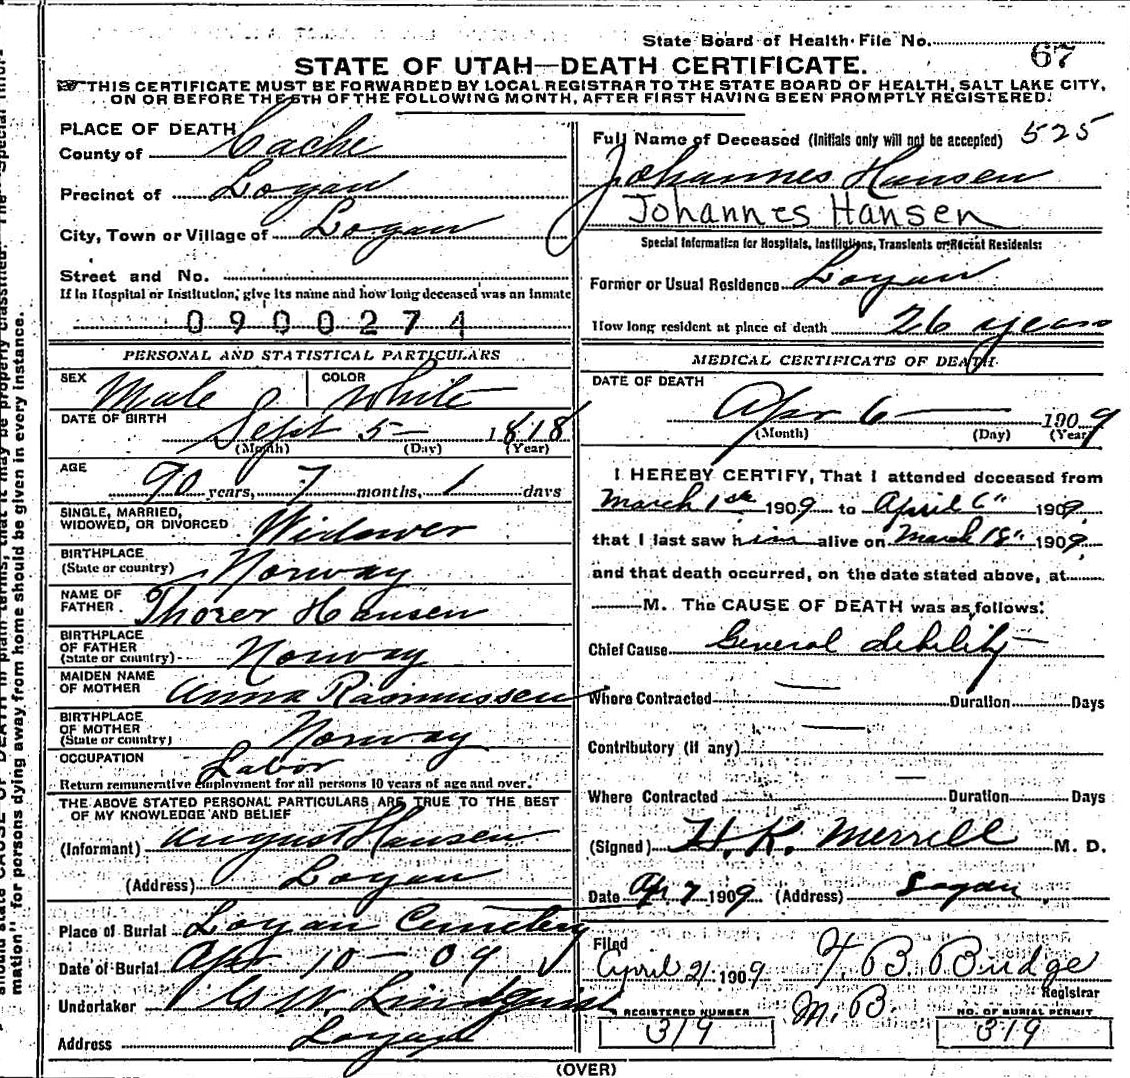 State Board of Health File No. 67
STATE OF UTAH—DEATH CERTIFICATE.
THIS CERTIFICATE MUST BE FORWARDED BY LOCAL REGISTRAR TO THE STATE BOARD OF HEALTH, SALT LAKE CITY,
ON OR BEFORE THE 5TH OF THE FOLLOWING MONTH, AFTER FIRST HAVING BEEN PROMPTLY REGISTERED.
PLACE OF DEATH
County of Cache
Precinct of Logan
City, Town or Village of Logan
Street and No.
If in Hospital or Institution, give its name and how long deceased was an inmate
0900274
PERSONAL AND STATISTICAL PARTICULARS
SEX Male COLOR White
DATE OF BIRTH Sept 5 — 1818
(Month) (Day) (Year)
AGE 90 years, 7 months, 1 days
SINGLE, MARRIED,
WIDOWED, OR DIVORCED Widower
BIRTHPLACE
(State or country) Norway
NAME OF
FATHER. Thorer Hansen
BIRTHPLACE
OF FATHER
(State or country) Norway
MAIDEN NAME
OF MOTHER Anna Rasmussen
BIRTHPLACE
OF MOTHER
(State or country) Norway
OCCUPATION Labor
Return remunerative employment for all persons 10 years of age and over.
THE ABOVE STATED PERSONAL PARTICULARS ARE TRUE TO THE BEST
OF MY KNOWLEDGE AND BELIEF
(Informant) August Hansen
(Address) Logan
Place of Burial Logan Cemetery
Date of Burial Apr 10 — 09
Undertaker W. Lindquist
Address Logan
Full Name of Deceased (Initials only will not be accepted) 525
Johannes Hansen
Johannes Hansen
Special Information for Hospitals, Institutions, Transients or Recent Residents:
Former or Usual Residence Logan
How long resident at place of death 26 years
MEDICAL CERTIFICATE OF DEATH
DATE OF DEATH
Apr 6 — 1909
(Month) (Day) (Year)
I HEREBY CERTIFY, That I attended deceased from
March 1st 1909 to April 6" 1909
that I last saw him alive on March 18" 1909
and that death occurred, on the date stated above, at
M. The CAUSE OF DEATH was as follows:
Chief Cause General debility
Where Contracted — Duration Days
Contributory (if any) —
Where Contracted — Duration Days
(Signed) H. K. Merrill M. D.
Date Apr 7 1909 (Address) Logan
Filed
April 21 1909 F. B. Budge
Registrar
M. B.
REGISTERED NUMBER NO. OF BURIAL PERMIT
319 319
(OVER)
mation" for persons dying away from home should be given in every instance.